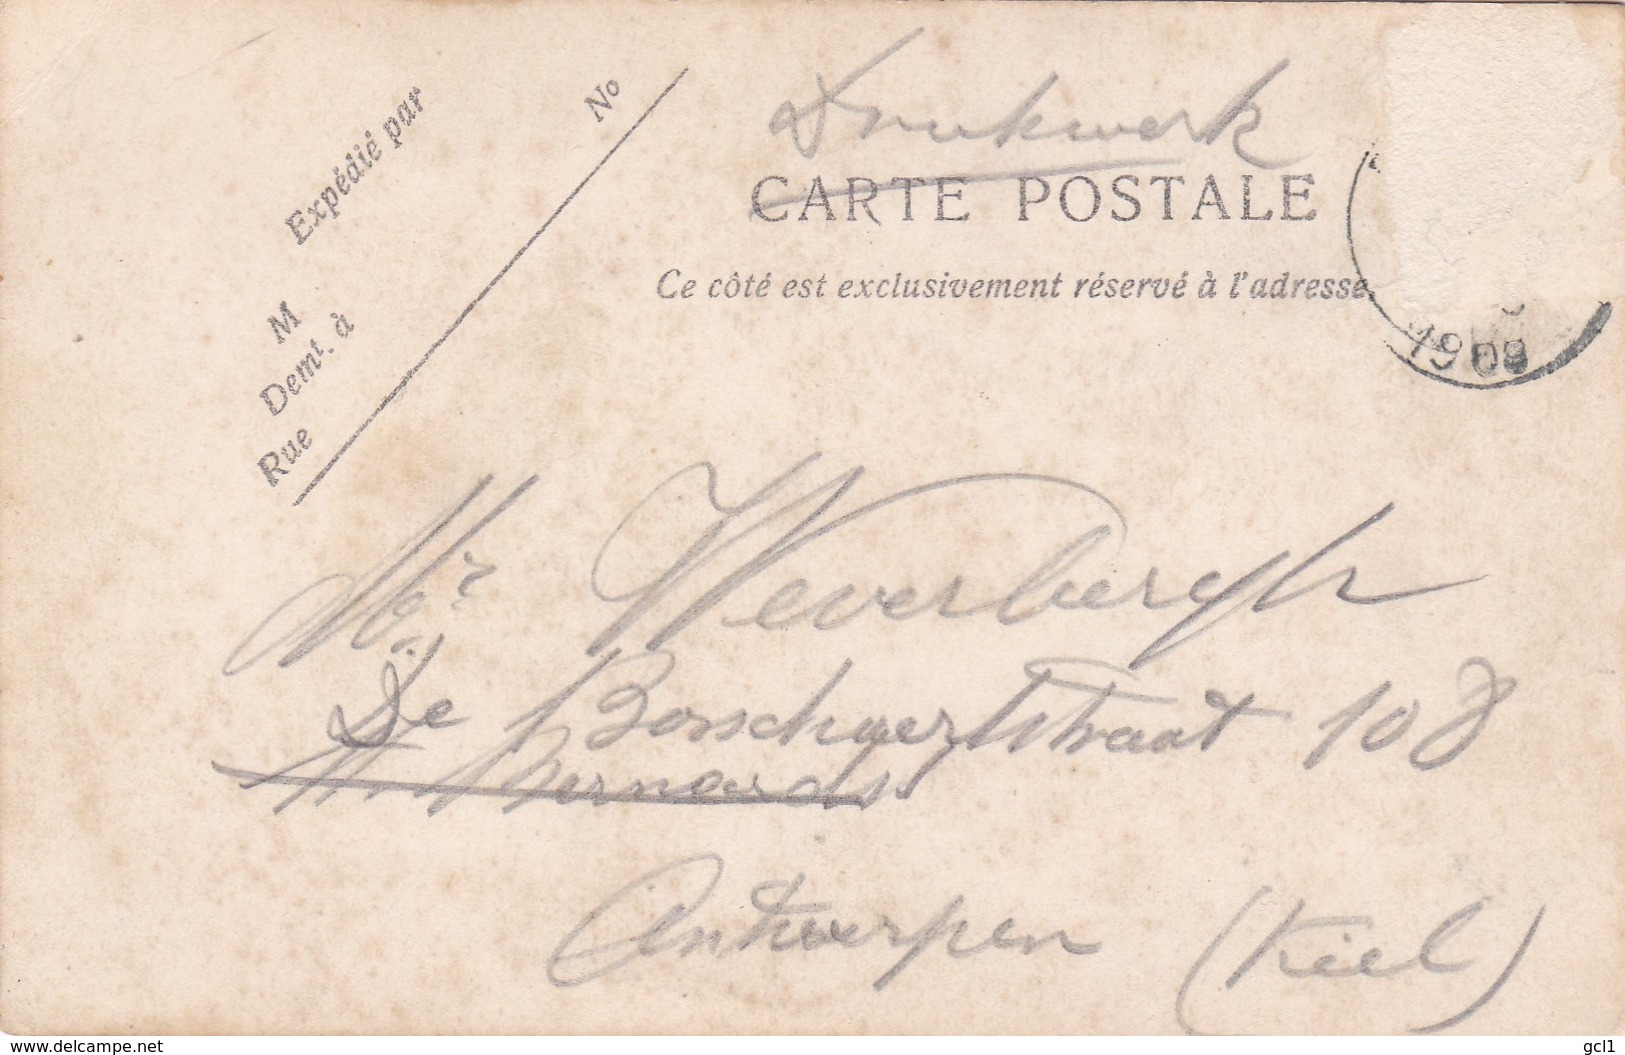 Expédié par
No
M
Demt. à
Rue
Drukwerk
CARTE POSTALE
Ce côté est exclusivement réservé à l'adresse.
1908
Mr Weverbergh
De Bosschaertstraat 108
St. Bernards
Antwerpen (Kiel)
www.delcampe.net
gcl1